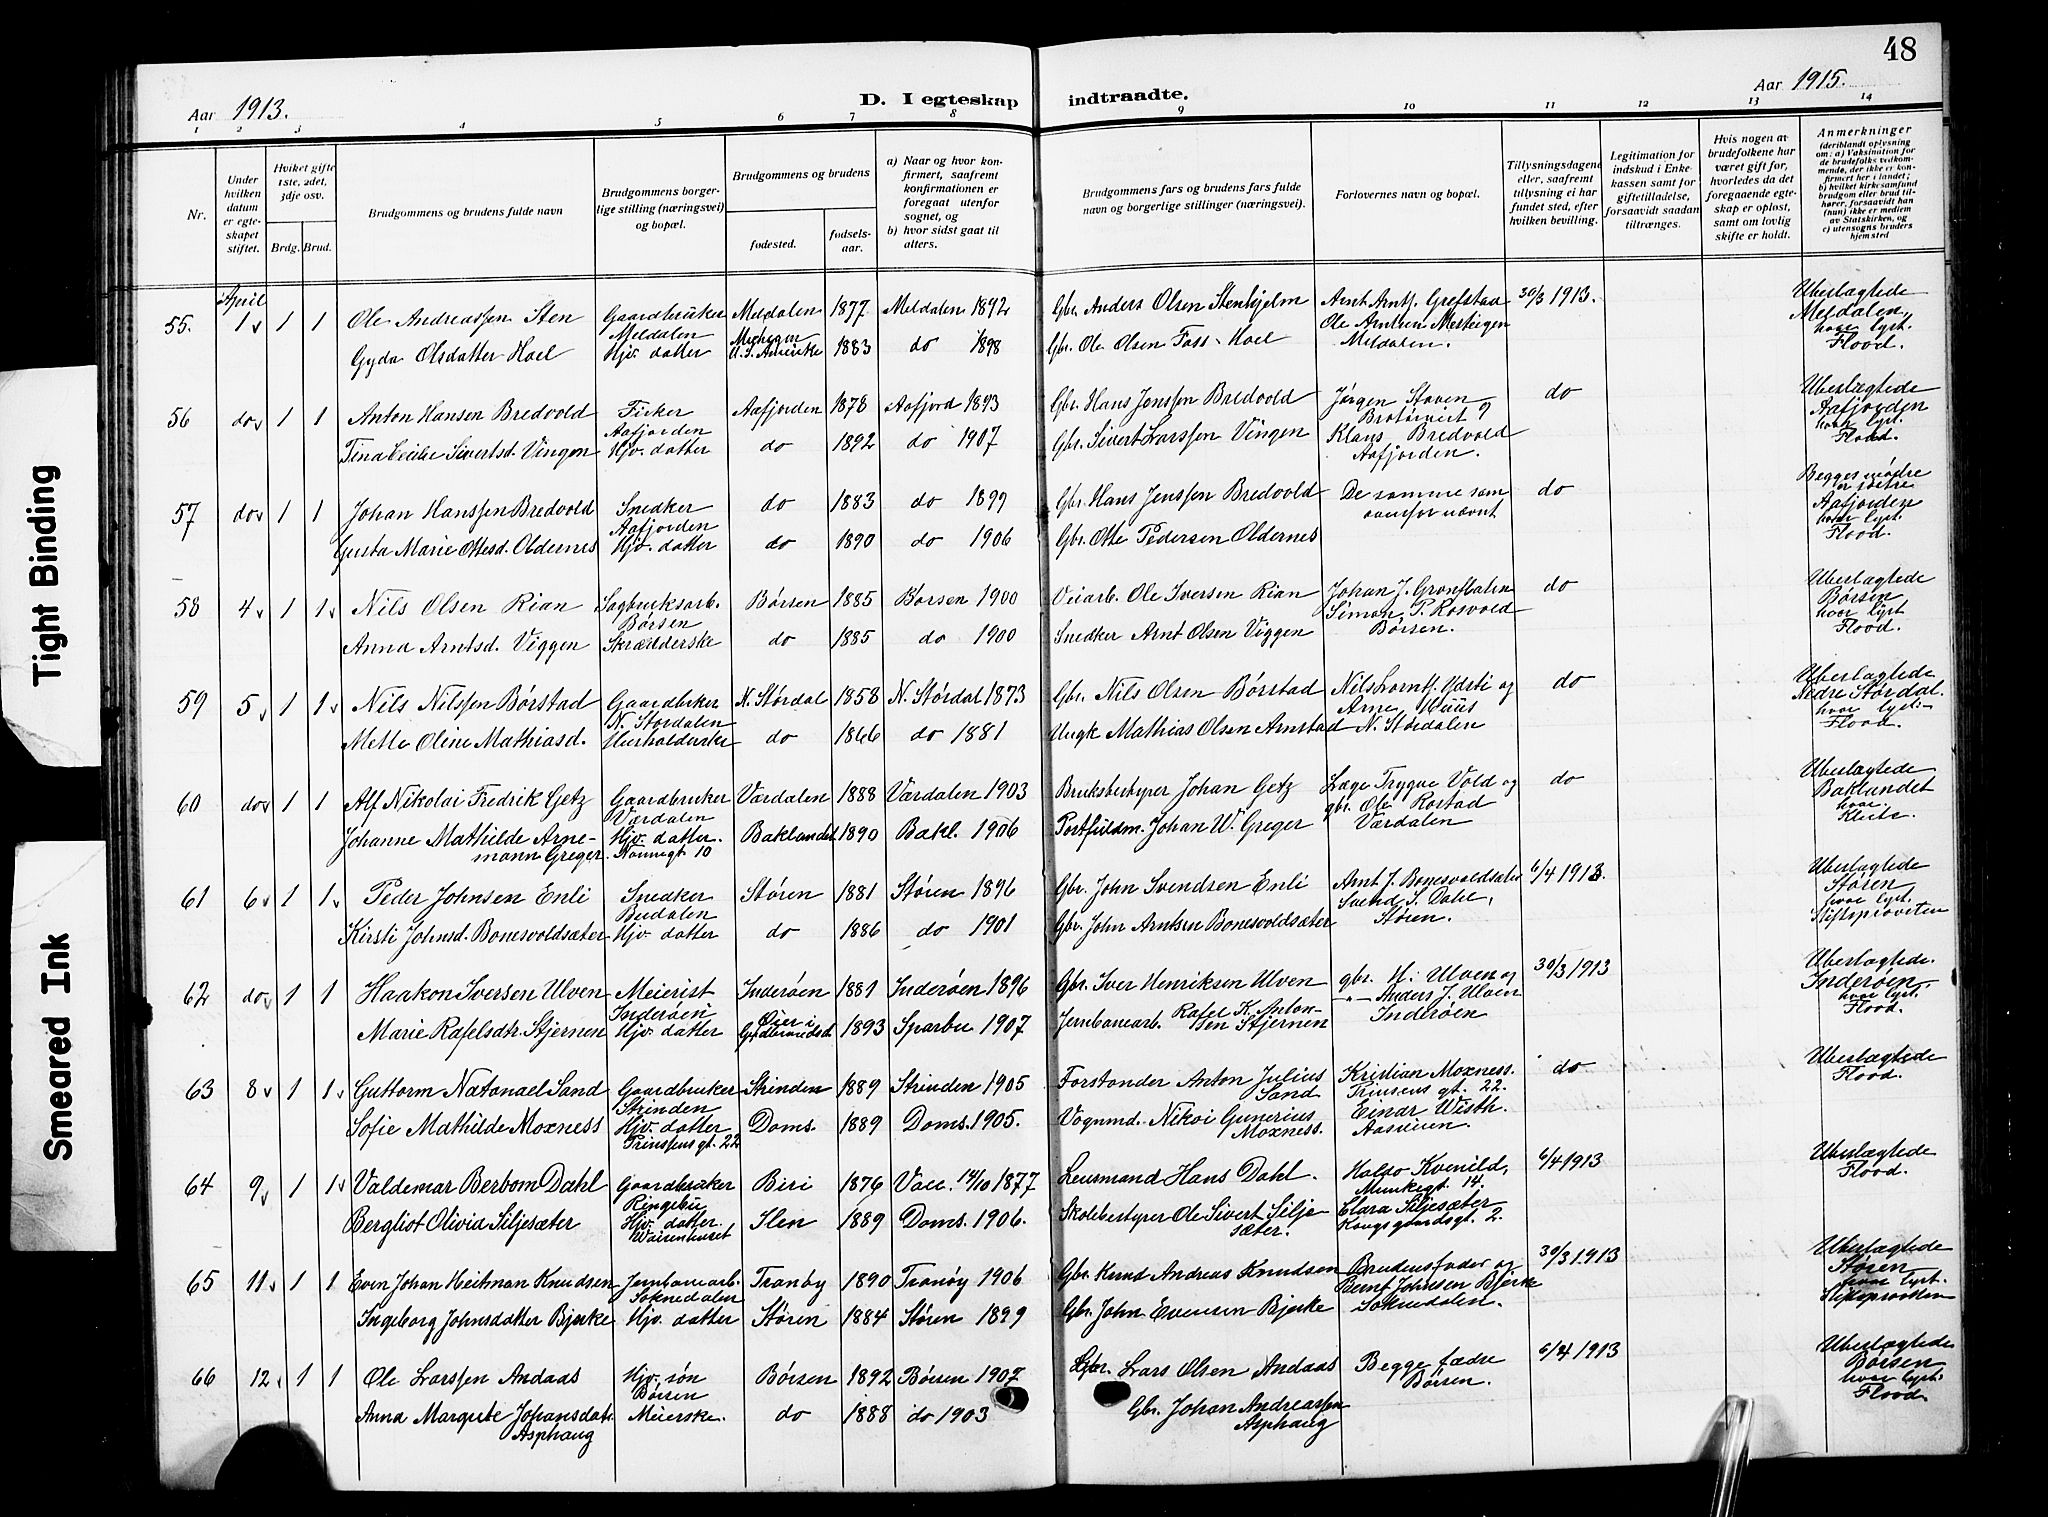 48
Aar 1913.
D. I egteskap indtraadte.
Aar 1915.
1 2 3 4 5 6 7 8 9 10 11 12 13 14
Nr.
Under hvilken datum er egteskapet stiftet.
Hviket gifte 1ste, 2det, 3dje osv.
Brdg. Brud.
Brudgommens og brudens fulde navn
Brudgommens borgerlige stilling (næringsvei) og bopæl.
Brudgommens og brudens
fødested. fødselsaar.
a) Naar og hvor konfirmert, saafremt konfirmationen er foregaat utenfor sognet, og
b) hvor sidst gaat til alters.
Brudgommens fars og brudens fars fulde navn og borgerlige stillinger (næringsvei).
Forlovernes navn og bopæl.
Tillysningsdagene eller, saafremt tillysning ei har fundet sted, efter hvilken bevilling.
Legitimation for indskud i Enkekassen samt for giftetilladelse, forsaavidt saadan tiltrænges.
Hvis nogen av brudefolkene har været gift før, hvorledes da det foregaaende egteskap er opløst, samt om lovlig skifte er holdt.
Anmerkninger (deriblandt oplysning om: a) Vaksination for de brudefolks vedkommende, der ikke er konfirmert her i landet; b) hvilket kirkesamfund brudgom eller brud tilhører, forsaavidt han (hun) ikke er medlem av Statskirken, og c) utensogns bruders hjemsted
April
55. 1 1 1 Ole Andreassen Sten Gaardbruker Meldalen Meldalen 1877 Meldalen 1892 Gbr. Anders Olsen Stenhjelm Arnt Arntj. Grefstad 30/3 1913. Uberlægtede Meldalen, hvor lyst. Flood.
Gyda Olsdatter Hoel Hjv. datter Michigan U.S. Amerike 1883 do 1898 Gbr. Ole Olsen Foss-Hoel Ole Arntsen Mesteigen Meldalen.
56 do 1 1 Anton Hansen Bredvold Fisker Aafjorden Aafjorden 1878 Aafjord 1893 Gbr. Hans Jenssen Bredvold Jørgen Stoven do Uberlægtede Aafjorden hvor lyst. Flood.
Tina Cecilie Sivertsd. Vingen Hjv. datter do 1892 do 1907 Gbr. Sivert Larssen Vingen Klaus Bredvold Aafjorden.
57 do 1 1 Johan Hanssen Bredvold Snedker Aafjorden do 1883 do 1899 Gbr. Hans Jenssen Bredvold De samme som ovenfor nævnt do Begges mødre er søstre Aafjorden hvor lyst. Flood.
Gusta Marie Ottesd. Oldernes Hjv. datter do 1890 do 1906 Gbr. Otte Pedersen Oldernes
58 4 1 1 Nils Olsen Rian Sagbruksarb. Børsen Børsen 1885 Børsen 1900 Veiarb. Ole Iversen Rian Johan J. do Uberlægtede Børsen hvor lyst Flood.
Anna Arntsd. Viggen Skrædderske do 1885 do 1900 Snedker Arnt Olsen Viggen Simon P. Rosvold Børsen.
59 5 1 1 Nils Nilssen Børstad Gaardbruker N. Størdalen N. Størdal 1858 N. Størdal 1873 Gbr. Nils Olsen Børstad Nils Lorntj. Ydsti og do Uberlægtede Nedre Størdal. hvor lyst. Flood.
Mette Oline Mathiasd. Husholderske do 1866 do 1881 Ungk Mathias Olsen Arnstad Arne Huus N. Størdalen
60 do 1 1 Alf Nikolai Fredrik Getz Gaardbruker Værdalen Værdalen 1888 Værdalen 1903 Bruksbestyrer Johan Getz Læge Trygve Vold og do Uberlægtede Baklandet hvor. Klüte.
Johanne Mathilde Arnemann Greger Hjv. datter. Nonnegt. 10 Baklandet 1890 Bakl. 1906 Postfuldm. Johan W. Greger gbr. Ole Rostad Værdalen
61 6 1 1 Peder Johnsen Enli Snedker Budalen Støren 1881 Støren 1896 Gbr. John Svendsen Enli Arnt J. Bonesvoldsæter 6/4 1913. Uberlægtede Støren, hvor lyst. Stiftsprovsten
Kirsti Johnsd. Bonesvoldsæter Hjv. datter do 1886 do 1901 Gbr. John Arntsen Bonesvoldsæter Svend S. Dahl, Støren.
62 do 1 1 Haakon Iversen Ulven Meierist Inderøen Inderøen 1881 Inderøen 1896 Gbr. Iver Henriksen Ulven gbr. H. Ulven og 30/3 1913 Uberlægtede. Inderøen hvor lyst. Flood.
Marie Rafelsdtr. Stjernen Hjv. datter Øier i Gudbrandsd. 1893 Sparbu 1907 Jernbanearb. Rafel K. Antonsen Stjernen -"- Anders J. Ulven Inderøen
63 8 1 1 Guttorm Natanael Sand Gaardbruker Strinden Strinden 1889 Strinden 1905 Forstander Anton Julius Sand Kristian Moxness. Prinsens gt. 22. do Uberlægtede Flood.
Sofie Mathilde Moxness Hjv. datter Prinsensgt. 22 Doms. 1889 Doms. 1905. Vognmd. Nikoi Gunerius Moxness. Einar Wisth. Aasveien.
64 9 1 1 Valdemar Berbom Dahl Gaardbruker Ringebu Biri 1876 Vacc. 14/10 1877 Lensmand Hans Dahl. Halvo Kvenild, Munkegt. 14. 6/4 1913 Uberlægtede Flood.
Bergliot Olivia Siljesæter Hjv. datter. Waisenhuset Ilen 1889 Doms. 1906. Skolebestyrer Ole Sivert Siljesæter. Clara Siljesæter Kongsgaardsgt. 2.
65 11 1 1 Even Johan Heitman Knudsen Jernbanearb. Soknedalen Tranøy 1890 Tranøy 1906 Gbr. Knud Andreas Knudsen Brudens fader og 30/3 1913 Uberlægtede Støren hvor lyst. Stiftsprovsten
Ingeborg Johnsdatter Bjerke Hjv. datter Støren 1884 Støren 1899 Gbr. John Evensen Bjerke Bernt Johnsen Bjerke Soknedalen.
66 12 1 1 Ole Larssen Andaas Hjv. søn Børsen Børsen 1892 Børsen 1907 Gbr. Lars Olsen Andaas Begge fædre Børsen. 6/4 1913 Uberlægtede Børsen hvor lyst. Flood.
Anna Margrete Johansdatr. Asphaug Meierske. do 1888 do 1903 Gbr. Johan Andreassen Asphaug
Tight Binding
Smeared Ink